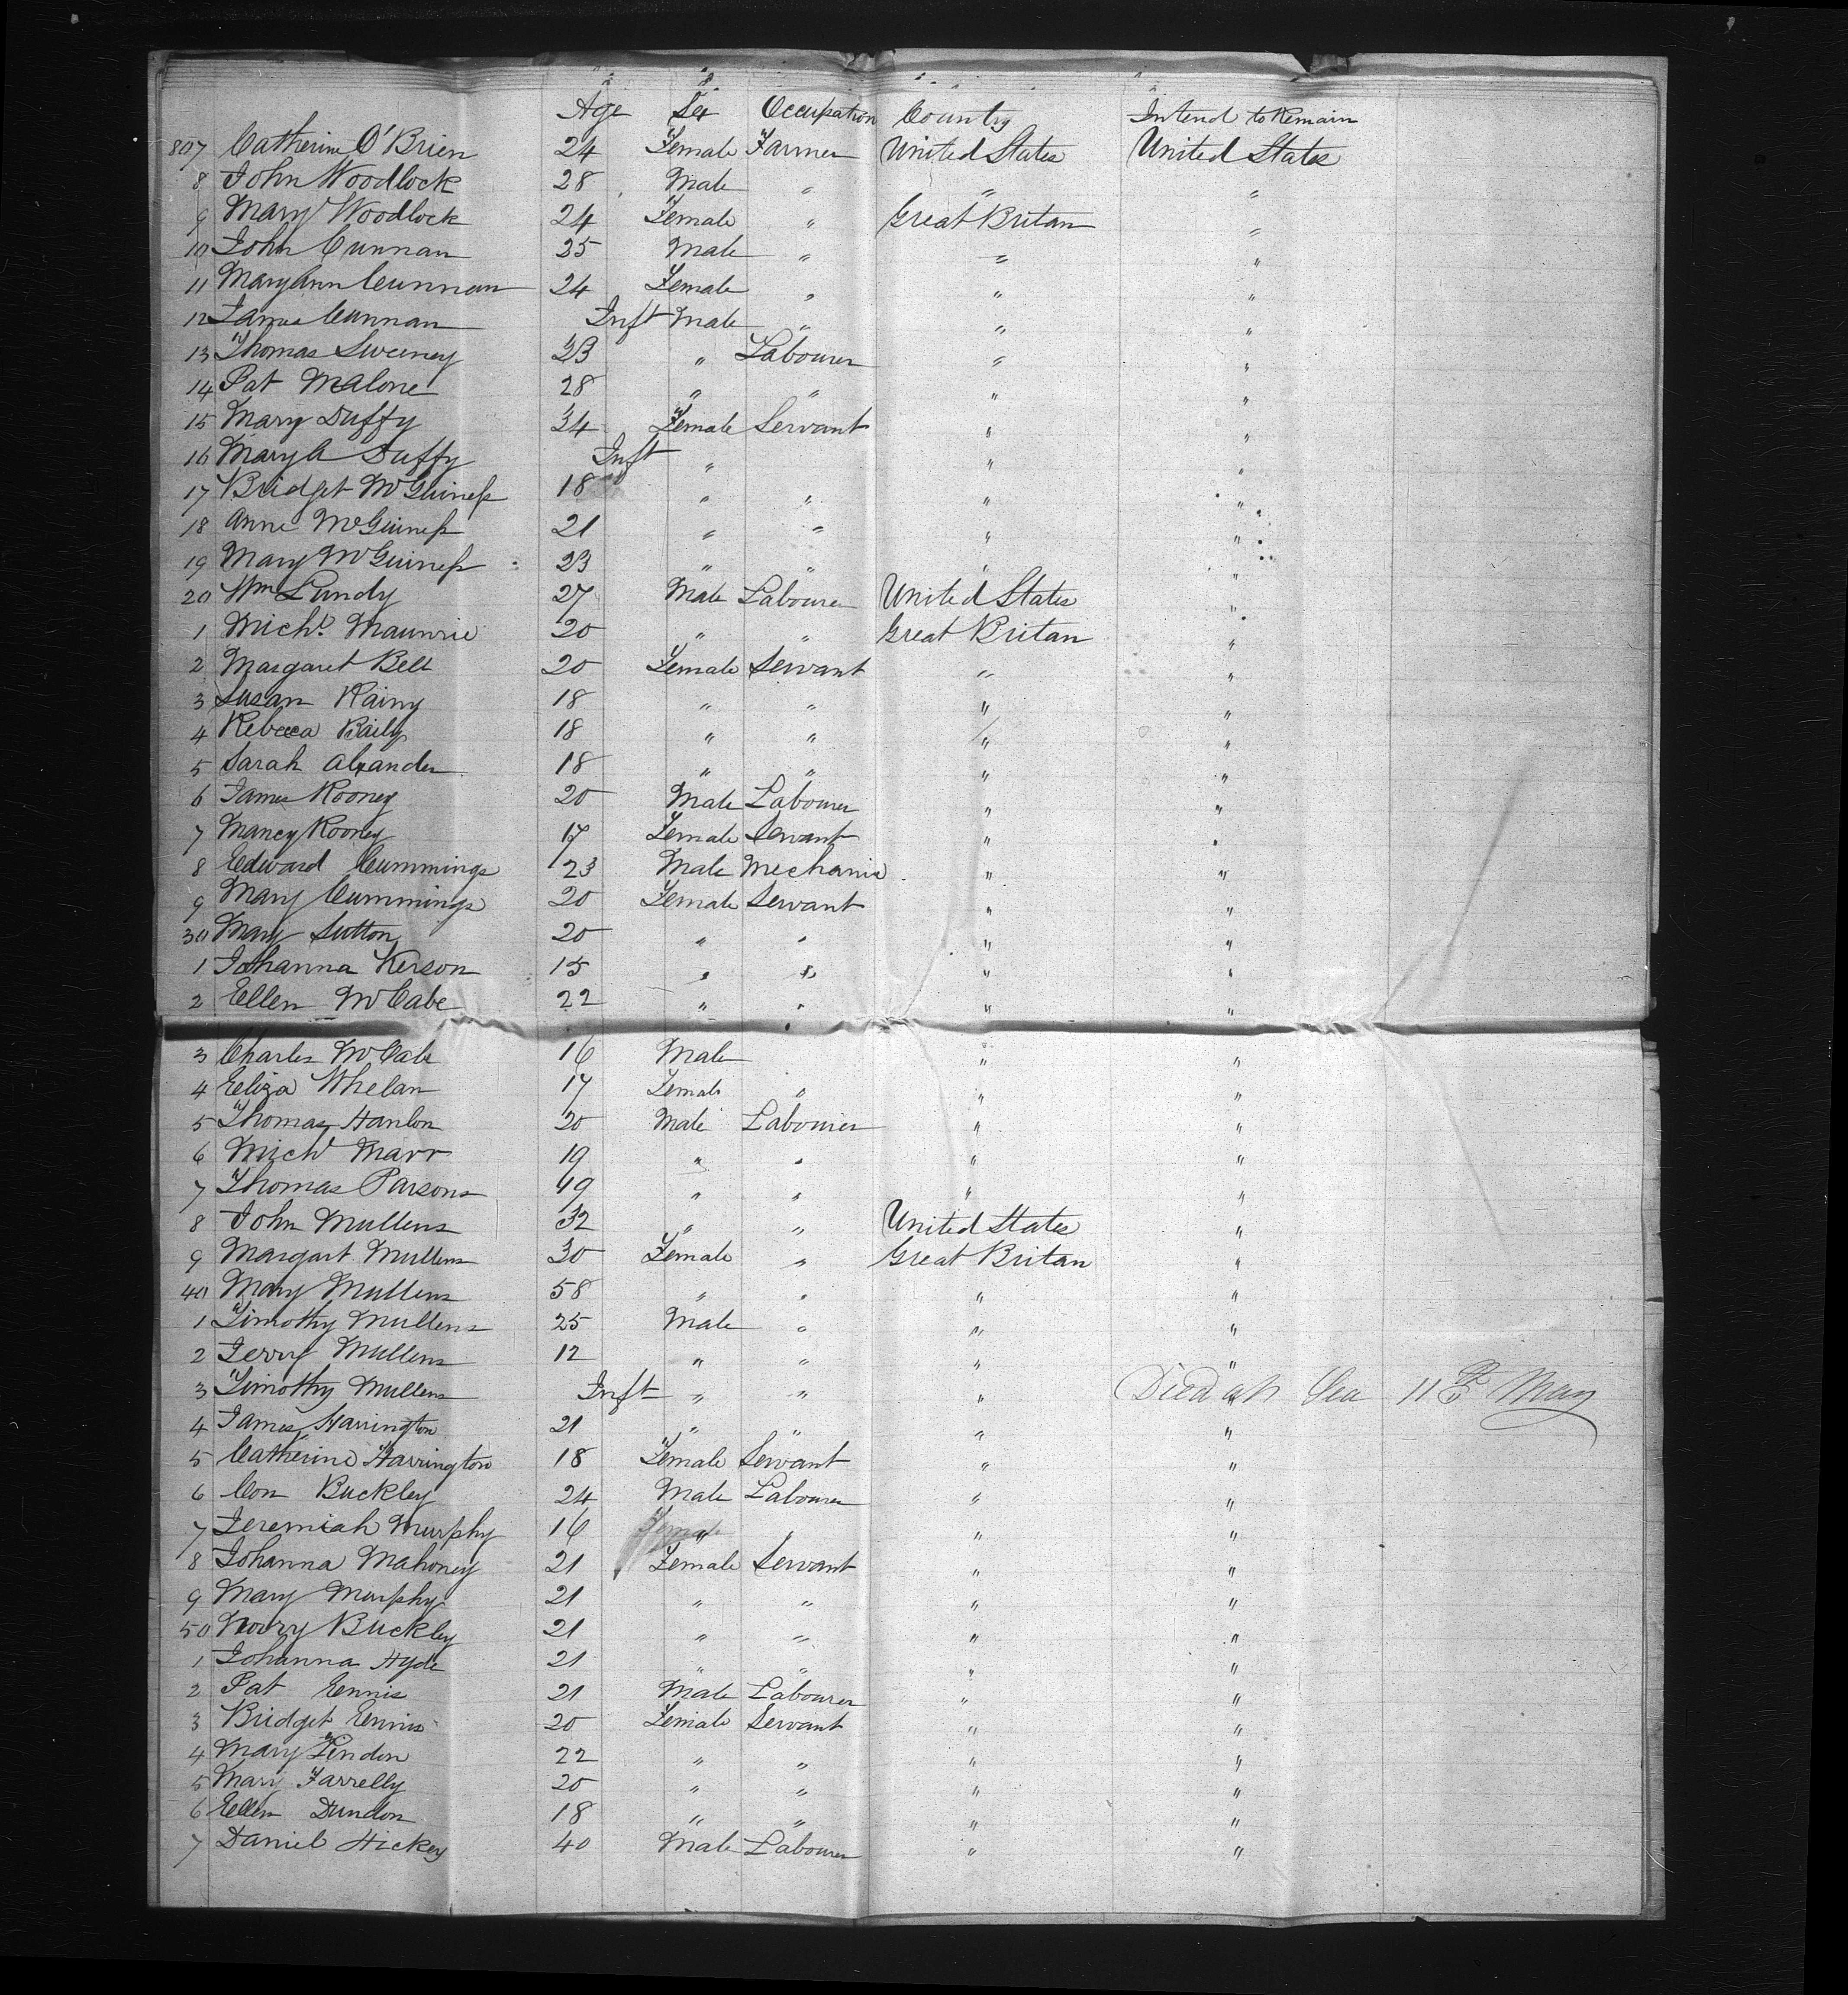 Age Sex Occupation Country Intend to Remain
807 Catherine O'Brien 24 Female Farmer United States United States
8 John Woodlock 28 Male " " "
9 Mary Woodlock 24 Female " Great Britan "
10 John Cunnan 25 Male " " "
11 Mary Ann Cunnan 24 Female " " "
12 James Cunnan Inft Male " " "
13 Thomas Sweeney 23 " Labourer " "
14 Pat Malone 28 " " " "
15 Mary Duffy 34 Female Servant " "
16 Mary A Duffy Inft " " "
17 Bridget McGuiness 18 " " " "
18 Anne McGuiness 21 " " " "
19 Mary McGuiness 23 " " " "
20 Wm Lundy 27 Male Labourer United States "
1 Michl Maunrie 20 " " Great Britan "
2 Margaret Bell 20 Female Servant " "
3 Susan Rainy 18 " " " "
4 Rebecca Baily 18 " " " "
5 Sarah Alxander 18 " " " "
6 James Rooney 20 Male Labourer " "
7 Nancy Rooney 17 Female Servant " "
8 Edward Cummings 23 Male Mechanic " "
9 Mary Cummings 20 Female Servant " "
30 Mary Sutton 20 " " " "
1 Johanna Kerson 15 " " " "
2 Ellen McCabe 22 " " " "
3 Charles McCabe 16 Male " "
4 Eliza Whelan 17 Female " " "
5 Thomas Hanlon 20 Male Labourer " "
6 Michl Marr 19 " " " "
7 Thomas Parsons 49 " " " "
8 John Mullens 32 " " United States "
9 Margart Mullens 30 Female " Great Britan "
40 Mary Mullens 58 " " " "
1 Timothy Mullens 25 Male " " "
2 Jerry Mullens 12 " " " "
3 Timothy Mullens Inft " " " " Died at Sea 11th May
4 James Harrington 21 " " " "
5 Catherine Harrington 18 Female Servant " "
6 Con Buckley 24 Male Labourer " "
7 Jeremiah Murphy 16 " " " "
8 Johanna Mahoney 21 Female Servant " "
9 Mary Murphy 21 " " " "
50 Norry Buckley 21 " " " "
1 Johanna Hyde 21 " " " "
2 Pat Ennis 21 Male Labourer " "
3 Bridget Ennis 20 Female Servant " "
4 Mary Lindon 22 " " " "
5 Mary Farrelly 20 " " " "
6 Ellen Dundon 18 " " " "
7 Daniel Hickey 40 Male Labourer " "